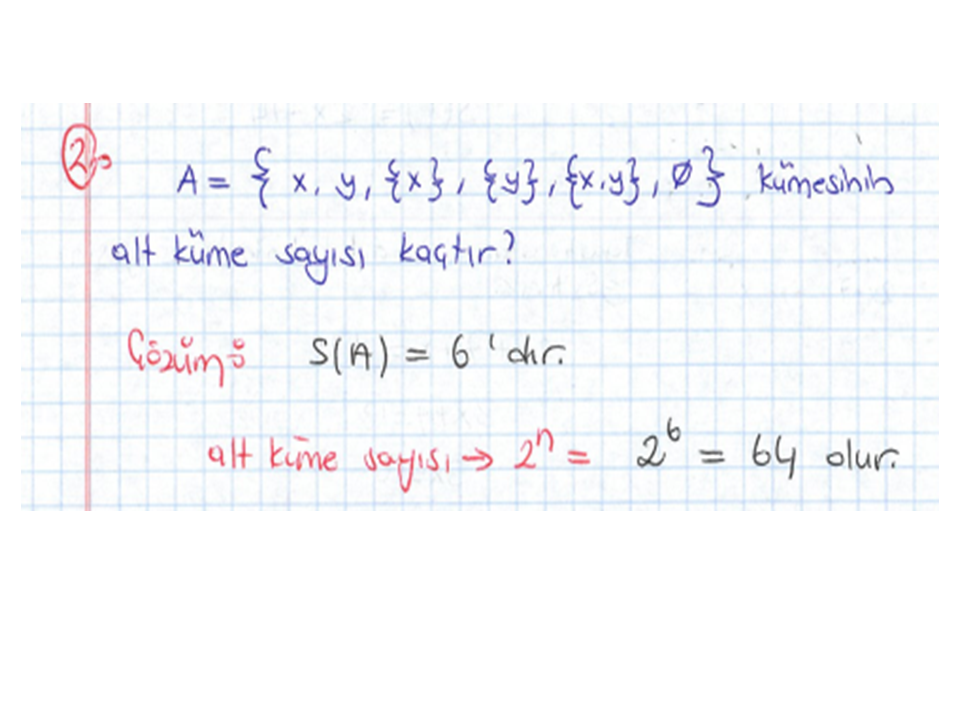 2) A = { x, y, {x}, {y}, {x,y}, ∅ } kümesinin
alt küme sayısı kaçtır?
Çözüm: S(A) = 6'dır.
alt küme sayısı → 2ⁿ = 2⁶ = 64 olur.